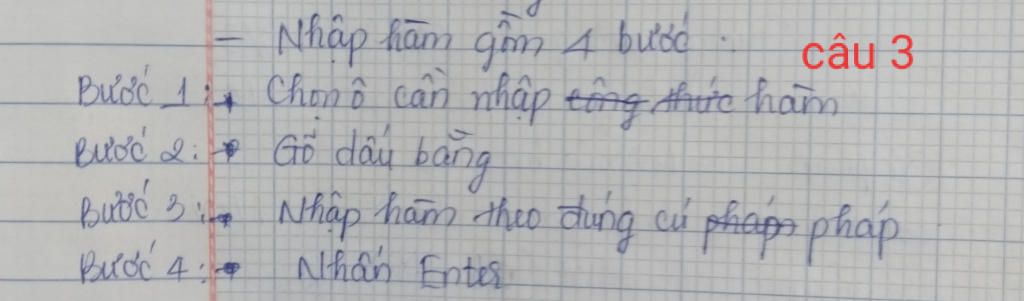 - Nhập hàm gồm 4 bước.
câu 3
Bước 1: Chọn ô cần nhập công thức hàm
Bước 2: Gõ dấu bằng
Bước 3: Nhập hàm theo đúng cú pháp pháp
Bước 4: Nhấn Enter